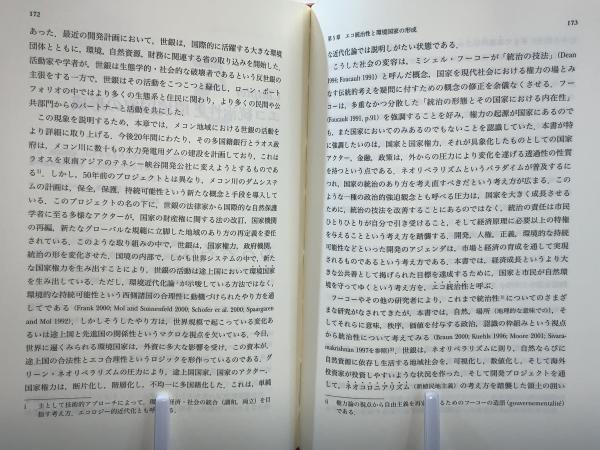 172
あった．最近の開発計画において，世銀は，国際的に活躍する大きな環境
団体とともに，環境，自然資源，財務に関連する省の取り込みを開始した．
活動家や学者が，世銀は生態学的・社会的な破壊者であるという反世銀の
主張をする一方で，世銀はその活動をこつこつと緑化し，ローン・ポート
フォリオの中ではより多くの生態系と住民に関わり，より多くの民間や公
共部門からのパートナーと活動を共にした．
この現象を説明するため，本章では，メコン地域における世銀の活動を
より詳細に取り上げる．今後20年間にわたり，その多国籍銀行とラオス政
府は，メコン川に数十もの水力発電用ダムの建設を計画しており，これは
ラオスを東南アジアのテネシー峡谷開発公社に変えようとするものであ
る．しかし，50年前のプロジェクトとは異なり，メコン川のダムシステ
ムの計画は，保全，保護，持続可能性という新たな概念と手段を導入して
いる．このプロジェクトの名の下に，世銀の法律家から国際的な自然保護
学者に至る多様なアクターが，国家の財産権に関する法の改訂，国家機関
の再編，新たなグローバルな規範に立脚した地域のあり方の再定義を委任
されている．このような取り組みの中で，世銀は，国家権力，政府機関，
統治の形を変化させた．国境の内部で，しかも世界システムの中で，新た
な国家権力を生み出すことにより，世銀の活動は途上国において環境国家
を生み出している．ただし，環境近代化論¹が示唆している方法ではなく，
環境的な持続可能性という西側諸国の合理性に動機づけられたやり方を通
してである (Frank 2000; Mol and Sonnenfeld 2000; Schofer et al. 2000; Spaargaren
and Mol 1992)．しかしそうしたやり方は，世界規模で起こっている変化あ
るいは途上国と先進国の関係性というマクロな視点を欠いている．今日，
世界に遅くみられる環境国家は，外資に多大な影響を受け，この資本が，
途上国の合法性とエコ合理性というロジックを形作っているのである．グ
リーン・ネオリベラリズムの圧力により，途上国国家，国家のアクター，
国家権力は，断片化し，階層化し，不均一に多国籍化した．これは，単純
1 主として技術的アプローチによって，環境・経済・社会の統合（調和，両立）を目
指す考え方．エコロジー的近代化とも呼ばれる．
第5章 エコ統治性と環境国家の形成
173
な近代化論では説明しがたい状態である．
こうした社会の変容は，ミシェル・フーコーが「統治の技法」(Dean
1994; Foucault 1991) と呼んだ概念，国家を現代社会における権力の場とみ
なす伝統的考えを疑問に付すための概念の修正を余儀なくさせる．フーコ
ーは，多重なかつ分散した「統治の形態とその国家における内在性」
(Foucault 1991, p.91) を強調することを好み，権力の起源が国家にあるので
も，また国家においてのみあるのでもないことを認識していた．本書が特
に強調したいのは，国家と国家権力，それが具象化したものとしての国家
アクター，金融，政策は，外からの圧力により変化を遂げる透過性の性質
を持つという点である．ネオリベラリズムというパラダイムが普及するに
つれ，国家の統治のあり方を考え直すべきだという考え方が広まる．この
ような一種の政治的強迫観念とも呼べる圧力は，国家を大きく成長させる
ために，統治の技法を改善することにあるのではなく，統治の責任は市民
ひとりひとりが自分で引き受けること，そして経済原理に必要以上の特権
を与えることという考え方を踏襲する．開発，人権，正義，環境的な持続
可能性などといった開発のアジェンダは，市場と経済の育成を通して実現
されるものであるという考え方である．本書では，経済成長というより大
きな公共善として掲げられた目標を達成するために，国家と市民が自然環
境を守ってゆくという考え方を，エコ統治性と呼ぶ．
フーコーやその他の研究者により，これまで統治性についてのさまざ
まな研究がなされてきたが，本書では，自然，場所（地理的な意味での），そ
してそれらに意味，秩序，価値を付与する政治，認識の枠組みという視点
から統治性について考えてみる (Braun 2000; Kuehls 1996; Moore 2001; Sivara-
makrishnan 1997を参照)．世銀は，ネオリベラリズムに則り，自然ならびに
自然資源に依存し生活する地域社会を，可視化し，数値化し，そして海外
投資家が投資しやすいような状況を作った．そして開発プロジェクトを通
して，ネオコロニアリズム（新植民地主義）の考え方を踏襲した領土の囲い
権力論の視点から自由主義を再
るためのフーコーの造語 (gouvernementalité)
である．